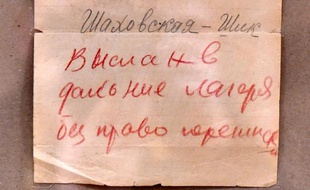 Шаховская-Шик
Выслан в
дальние лагеря
без право переписки